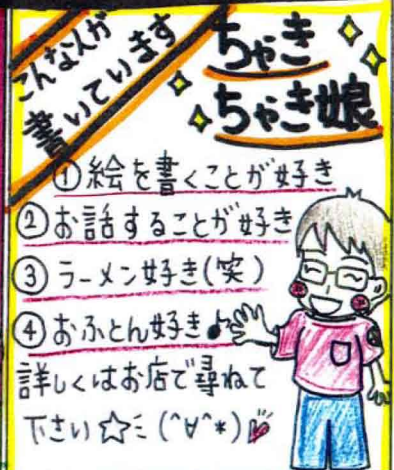 こんな人が
書いています
ちゃき
ちゃき娘
①絵を書くことが好き
②お話することが好き
③ラーメン好き(笑)
④おふとん好き♪
詳しくはお店で尋ねて
下さい☆ミ(^∀^*)